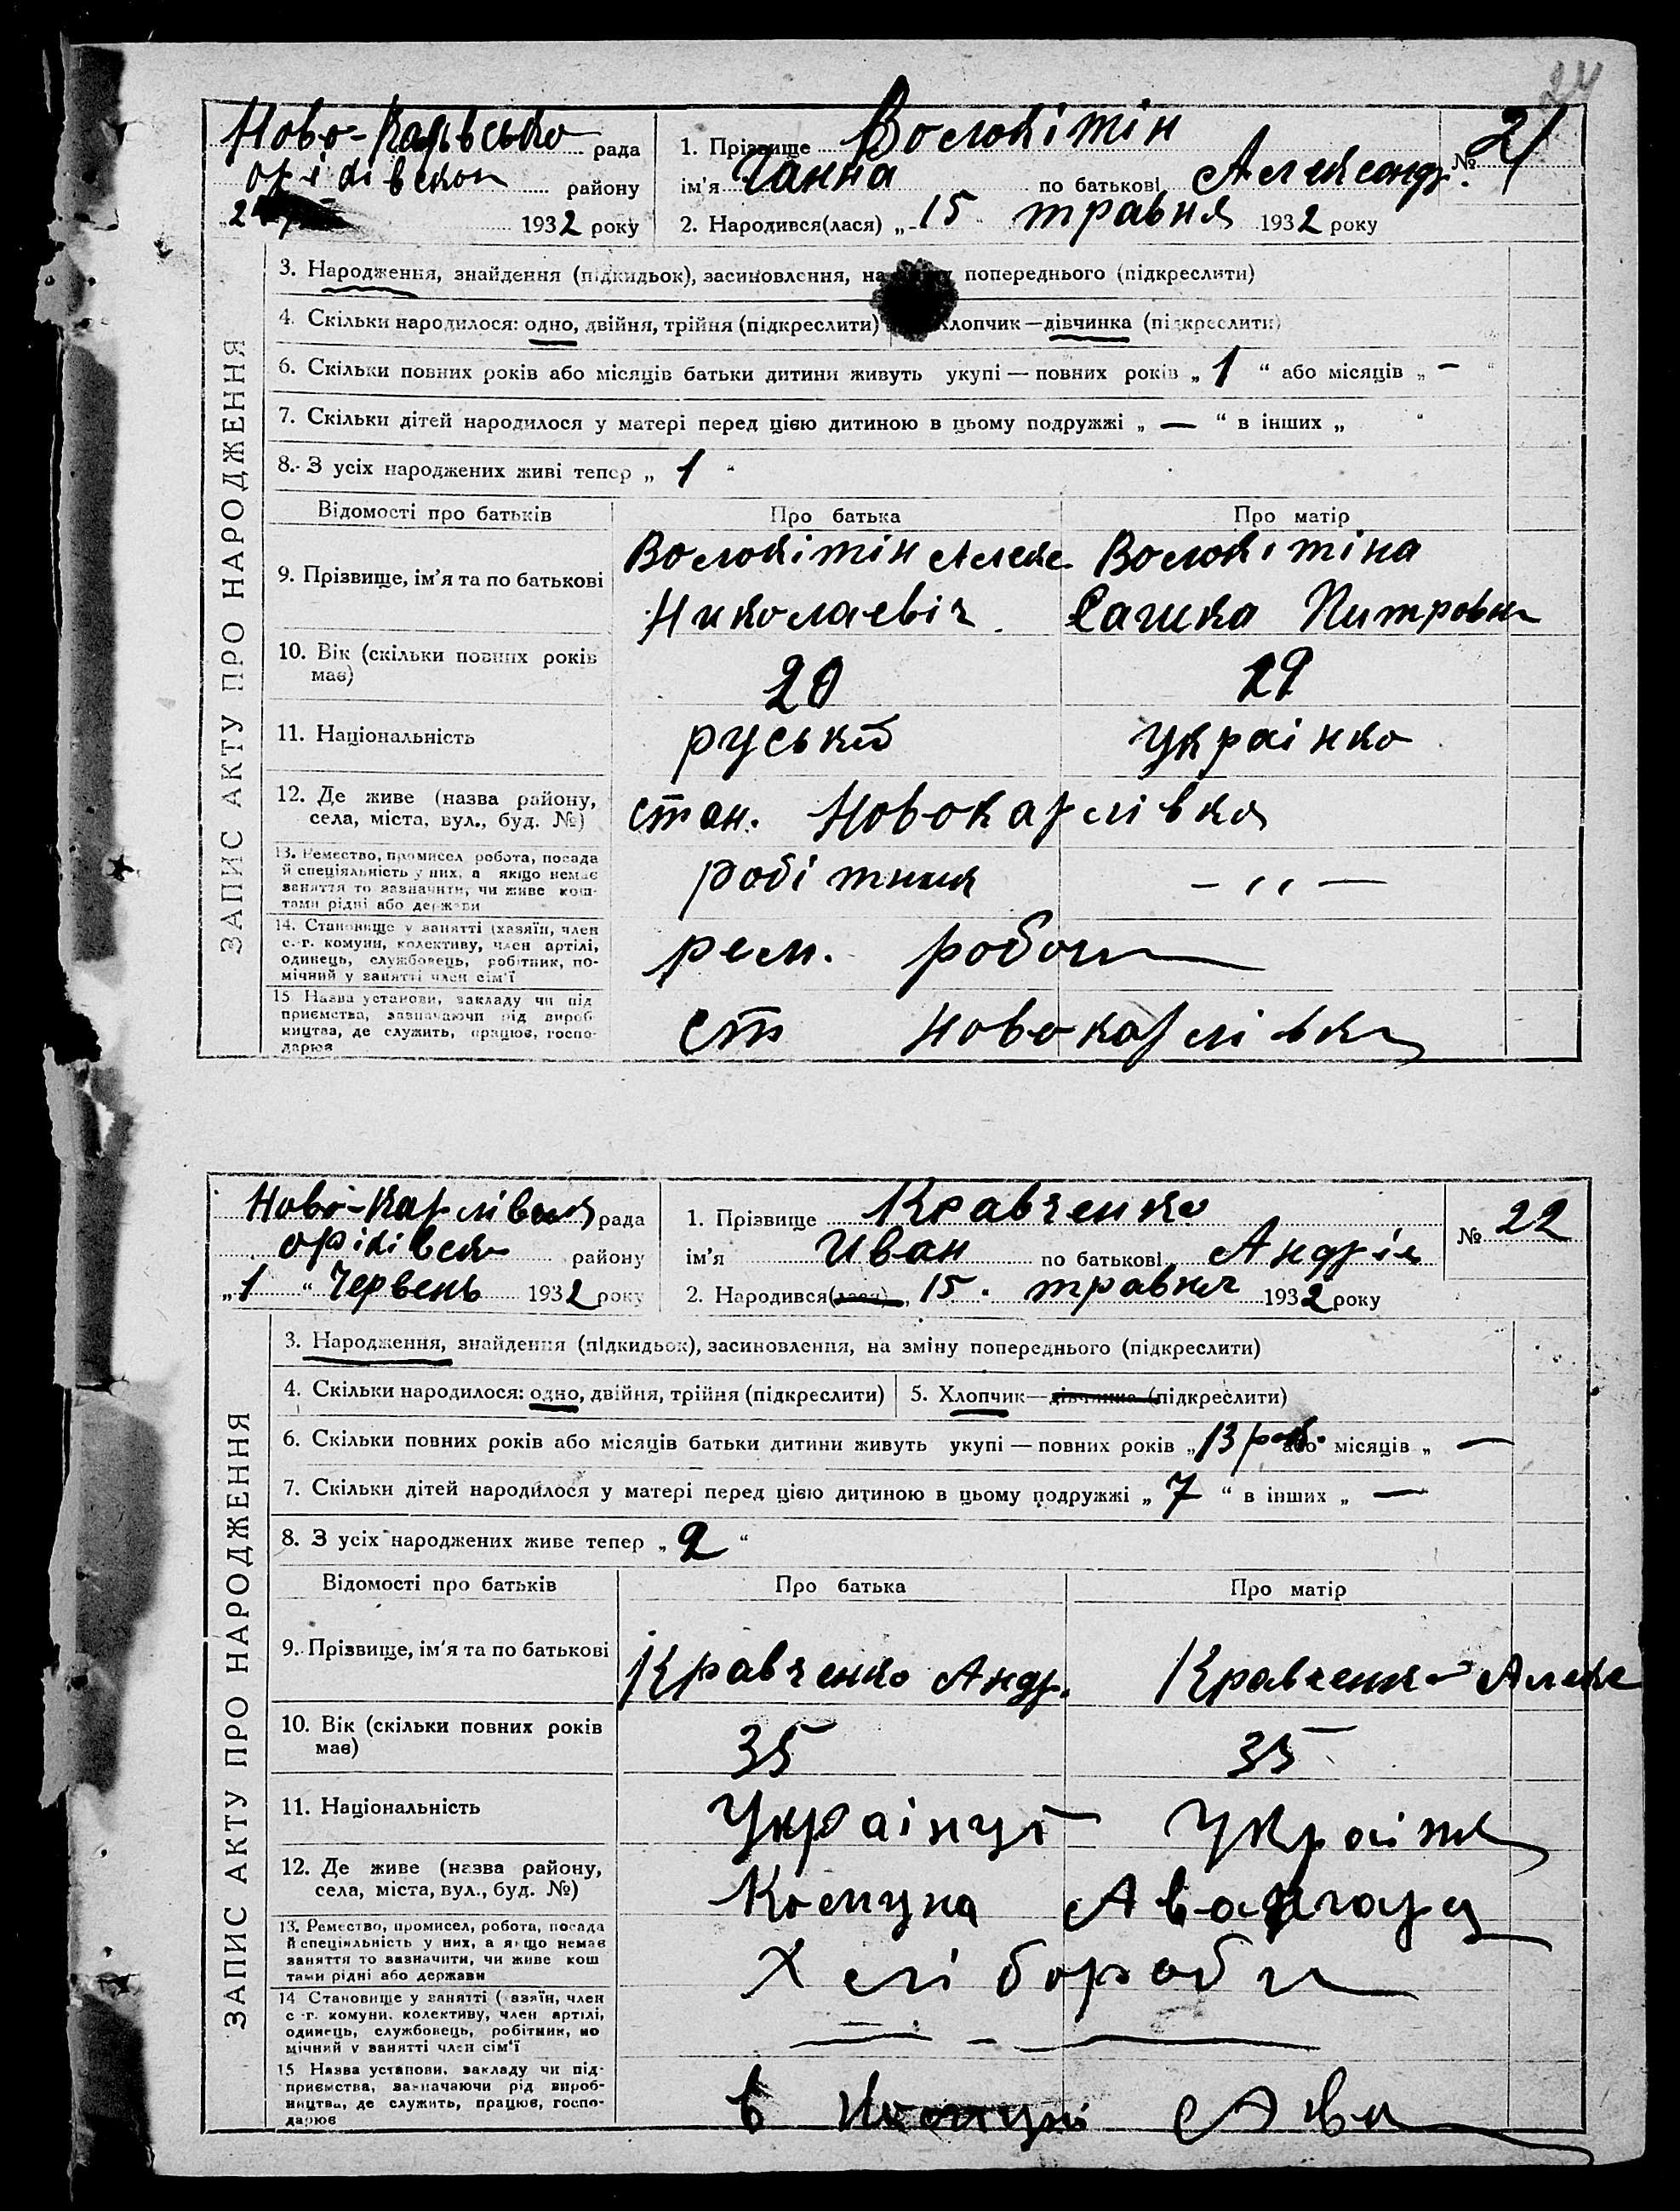 24
Ново-Карлівсько рада
оріківскои району
1932 року
1. Прізвище Волокітін
ім'я Ганна по батькові Александр.
2. Народився(лася) „ 15 травня 1932 року
№ 21
ЗАПИС АКТУ ПРО НАРОДЖЕННЯ
3. Народження, знайдення (підкидьок), засиновлення, на попереднього (підкреслити)
4. Скільки народилося: одно, двійня, трійня (підкреслити) хлопчик—дівчинка (підкреслити)
6. Скільки повних років або місяців батьки дитини живуть укупі — повних років „ 1 “ або місяців „ – “
7. Скільки дітей народилося у матері перед цією дитиною в цьому подружжі „ — “ в інших „ “
8. З усіх народжених живі тепер „ 1 “
Відомості про батьків Про батька Про матір
9. Прізвище, ім'я та по батькові
Волокітін Алекс. Волокітіна
Николаевіч Сашка Питровн
10. Вік (скільки повних років має)
20 29
11. Національність
руський украінко
12. Де живе (назва району, села, міста, вул., буд. №)
стан. Новокарлівка
13. Ремество, промисел робота, посада
й спеціяльність у них, а якщо немає
заняття то зазначити, чи живе кош-
тами рідні або держави
– ,, —
14. Становище у занятті (хазяїн, член
с.-г. комуни, колективу, член артілі,
одинець, службовець, робітник, по-
мічний у занятті член сім'ї
рем.
15. Назва установи, закладу чи під
приємства, зазначаючи рід вироб
ництва, де служить, працює, госпо-
дарює
ст Новокарлівка
Ново-Карлівська рада
оріківск району
„1 “ Червень 1932 року
1. Прізвище Кравченко
ім'я Иван по батькові Андрія
2. Народився(лася) „ 15. травня 1932 року
№ 22
ЗАПИС АКТУ ПРО НАРОДЖЕННЯ
3. Народження, знайдення (підкидьок), засиновлення, на зміну попереднього (підкреслити)
4. Скільки народилося: одно, двійня, трійня (підкреслити) 5. Хлопчик—дівчинка (підкреслити)
6. Скільки повних років або місяців батьки дитини живуть укупі — повних років „ 13 або місяців „ —
7. Скільки дітей народилося у матері перед цією дитиною в цьому подружжі „ 7 “ в інших „ — “
8. З усіх народжених живе тепер „ 2 “
Відомості про батьків Про батька Про матір
9. Прізвище, ім'я та по батькові
Кравченко Андр. Кравченко Алекс
10. Вік (скільки повних років має)
35 35
11. Національність
Украінці Украінк
12. Де живе (назва району, села, міста, вул., буд. №)
Комуна Авангард
13. Ремество, промисел, робота, посада
й спеціяльність у них, а якщо немає
заняття то зазначити, чи живе кош
тами рідні або держави
Хлібороби
14 Становище у занятті ( азяїн, член
с -г. комуни. колективу, член артілі,
одинець, службовець, робітник, по
мічний у занятті член сім'ї
15 Назва установи, закладу чи під-
приємства, зазначаючи рід вироб-
ництва, де служить, працює, госпо-
дарює
в Комуні Аван